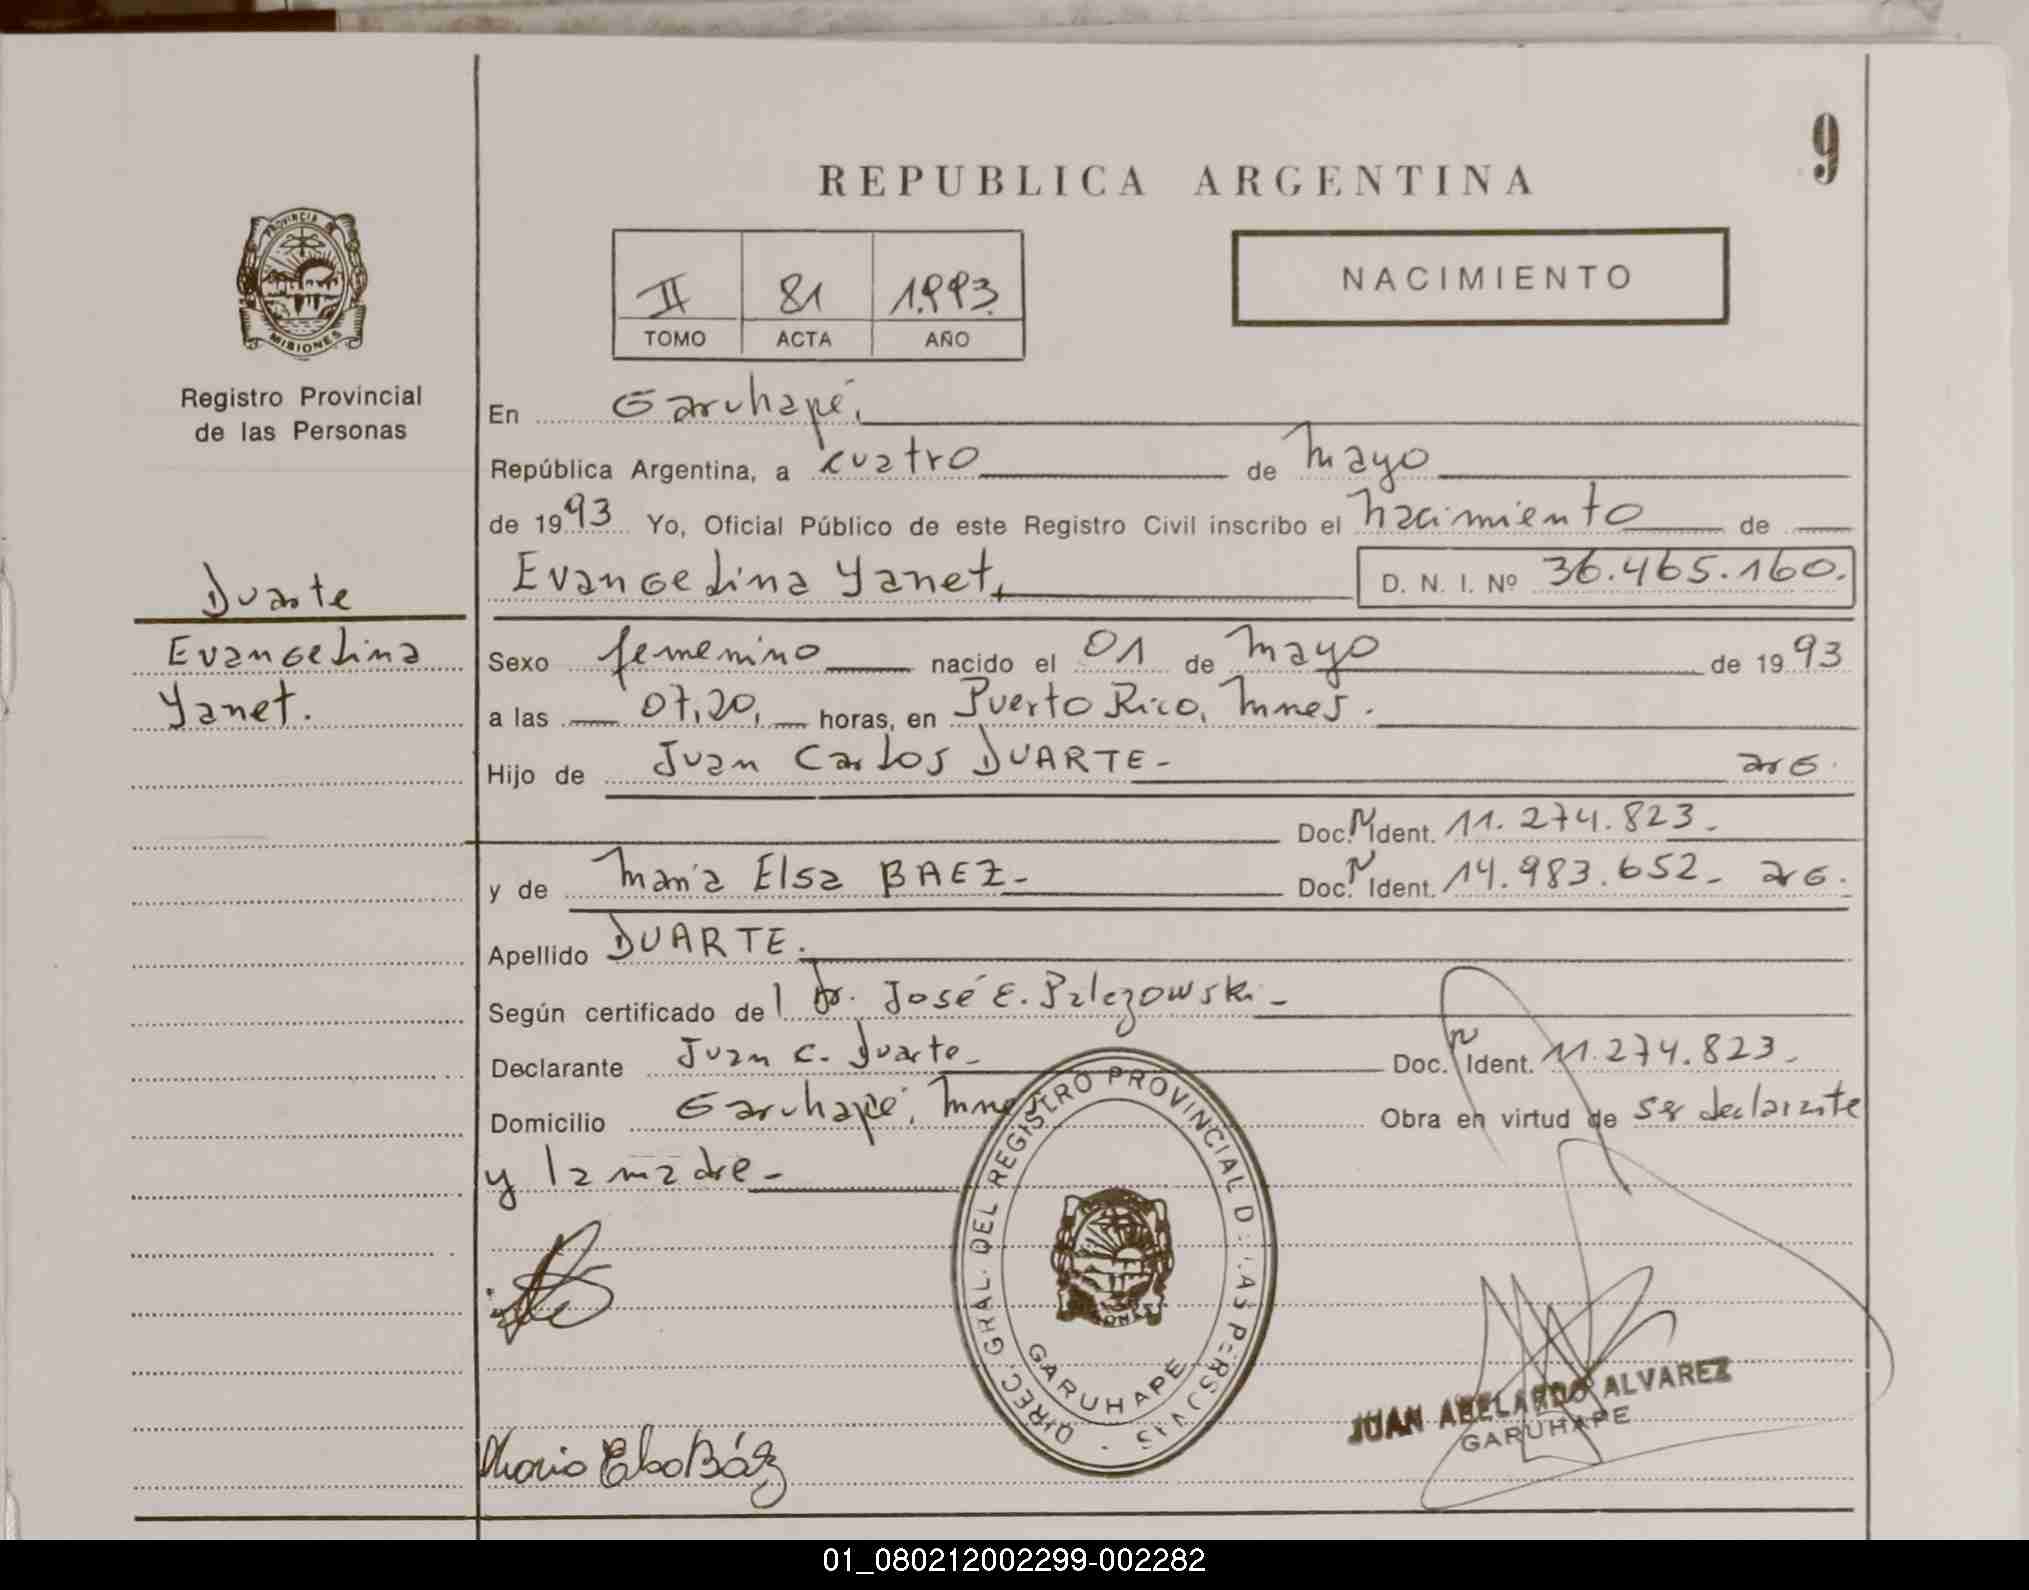 9
REPUBLICA ARGENTINA
PROVINCIA DE
MISIONES
Registro Provincial
de las Personas
II 81 1.993.
TOMO ACTA AÑO
NACIMIENTO
En Garuhapé,
República Argentina, a cuatro de mayo
de 1993 Yo, Oficial Público de este Registro Civil inscribo el nacimiento de
Evangelina Yanet, D. N. I. Nº 36.465.160.
Duarte
Evangelina
Yanet.
Sexo femenino nacido el 01 de mayo de 1993
a las 07,20, horas, en Puerto Rico, Mnes.
Hijo de Juan Carlos DUARTE- arg.
Doc. N Ident. 11.274.823-
y de María Elsa BAEZ- Doc. N Ident. 14.983.652- arg.
Apellido DUARTE.
Según certificado del Dr. José E. Palezowski-
Declarante Juan C. Duarte- Doc. N Ident. 11.274.823-
Domicilio Garuhapé, Mnes Obra en virtud de ser declarante
y la madre-
DIREC. GRAL. DEL REGISTRO PROVINCIAL DE LAS PERSONAS
GARUHAPE
JUAN ABELARDO ALVAREZ
GARUHAPE
Maria Elsa Báez
01_080212002299-002282